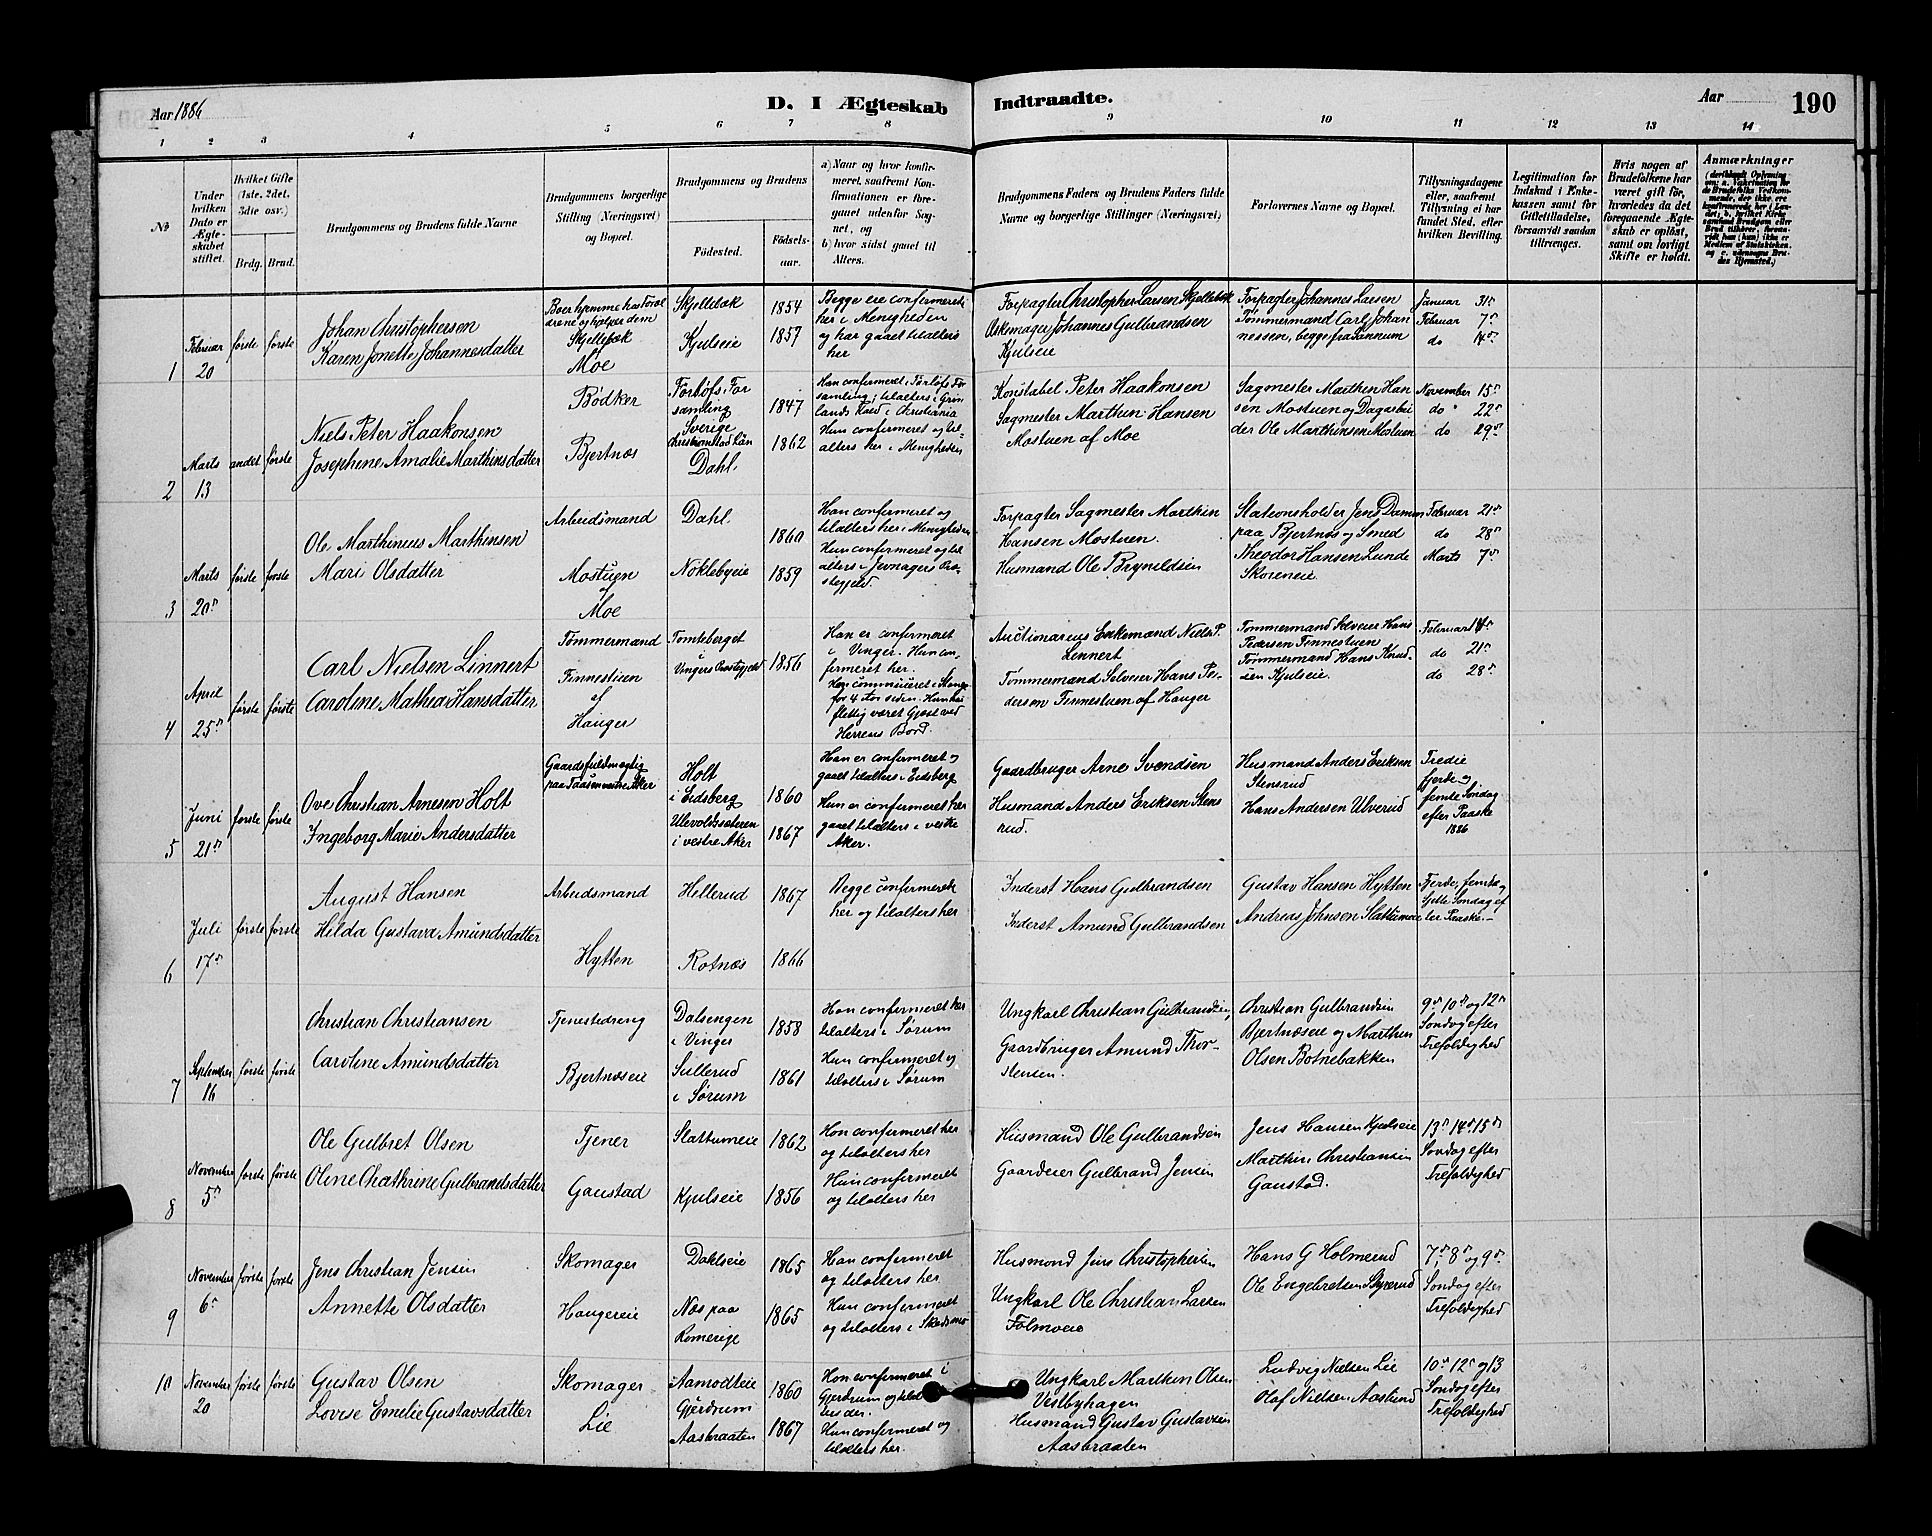 Aar 1886
D. I Ægteskab Indtraadte.
Aar
190
1 2 3 4 5 6 7 8 9 10 11 12 13 14
No
Under hvilken Dato er Ægteskabet stiftet.
Hvilket Gifte (1ste. 2det. 3die osv.)
Brdg. Brud.
Brudgommens og Brudens fulde Navne
Brudgommens borgerlige Stilling (Næringsvei) og Bopæl.
Brudgommens og Brudens
Fødested.
Fødsels-aar.
a) Naar og hvor konfirmeret, saafremt Konfirmationen er foregaaet udenfor Sognet, og
b) hvor sidst gaaet til Alters.
Brudgommens Faders og Brudens Faders fulde Navne og borgerlige Stillinger (Næringsvei)
Forlovernes Navne og Bopæl.
Tillysningsdagene eller, saafremt Tillysning ei har fundet Sted, efter hvilken Bevilling.
Legitimation for Indskud i Enkekassen samt for Giftetilladelse, forsaavidt saadan tiltrænges.
Hvis nogen af Brudefolkene har været gift før, hvorledes da det foregaaende Ægteskab er opløst, samt om lovligt Skifte er holdt.
Anmærkninger
1
Februar 20
første første
Johan Christophersen
Karen Jonette Johannesdatter
Skjellebæk
Moe
Skjellebæk
Kjulseie
1854
1857
Begge ere confirmerede
her i Menigheden
og har gaaet tilalters
her
Forpagter Christopher Larsen Skjellebæk
Askemager Johannes Gulbrandsen
Kjulseie
Forpagter Johannes Larsen
Tømmermand Carl Johan
nessen, begge fra Tannum
Januar 31
Februar 7
do 14
2
Marts 13
andet første
Niels Peter Haakonsen
Josephine Amalie Marthinsdatter
Bødker
Bjertnæs
samling
Sverige
Christianstad Län
Dahl
1847
1862
Hun confirmeret og til-
alters her i Menigheden
Konstabel Peter Haakonsen
Sagmester Marthin Hansen
Mostuen af Moe
Sagmester Marthin Han
sen Mostuen og Dagarbei
der Ole Marthinsen Mostuen
November 15
do 22
do 29
3
Marts 20
første første
Ole Marthinius Marthinsen
Mari Olsdatter
Arbeidsmand
Mostuen
af
Moe
Dahl
Nøklebyeie
1860
1859
Han confirmeret og
tilalters her i Menigheden
Hun confirmeret og til
alters i Jevnagers Præ-
stegjeld.
Forpagter Sagmester Marthin
Hansen Mostuen.
Husmand Ole Brynildsen
Stationsholder Jens Damm
paa Bjertnæs og Smed
Theodor Hansen Lunde
Skøreneie
Februar 21
do 28
Marts 7
4
April 25
første første
Carl Nielsen Linnert
Caroline Mathea Hansdatter
Tømmermand
Finnestuen
af
Hauger
Tomteberget
i
Vingers Præstegjeld
1856
Han er confirmeret
i Vinger. Hun con-
firmeret her.
for 4 Aar siden. Hun har
flittig været Gjæst ved
Herrens Bord.
Auctionarius Enkemand Niels P.
Linnert
Tømmermand Selveier Hans Pe-
dersen Finnestuen af Hauger
Tømmermand Selveier Hans
Pedersen Finnestuen
Tømmermand Hans Knud-
sen Kjulseie.
Februar 14
do 21
do 28
5
Juni 21
første første
Ove Christian Arnesen Holt
Ingeborg Marie Andersdatter
Gaardsfuldmægtig
paa Taasen vestre Aker
Holt
i Eidsberg
Ulevoldssæteren
i vestre Aker
1860
1867
Han er confirmeret og
gaaet tilalters i Eidsberg
Hun er confirmeret her
gaaet tilalters i vestre
Aker.
Gaardbruger Arne Svendsen
Husmand Anders Eriksen Stens
rud.
Husmand Anders Eriksen
Stensrud
Hans Andersen Ulverud
Tredie
fjerde og
femte Søndag
efter Paaske
1886
6
Juli 17
første første
August Hansen
Hilda Gustava Amundsdatter
Arbeidsmand
Hytten
Hellerud
Rotnæs
1867
1866
Begge confirmerede
her og tilalters her
Inderst Hans Gulbrandsen
Inderst Amund Gulbrandsen
Gustav Hansen Hytten
Andreas Johnsen Slattumeie
Fjerde, femte og
sjette Søndag ef
ter Paaske.
7
September 16
første første
Christian Christiansen
Caroline Amundsdatter
Tjenestedreng
Bjertnæseie
Dalsengen
i Vinger
Sullerud
i Sørum
1858
1861
Han confirmeret her
tilalters i Sørum
Hun confirmeret og
tilalters i Sørum
Ungkarl Christian Gulbrandsen,
Gaardbruger Amund Thor-
stensen.
Christian Gulbrandsen
Bjertnæseie og Marthin
Olsen Botnebakken
9 10 og 12
Søndag efter
Trefoldighed
8
November 5
første første
Ole Gulbret Olsen
Oline Chathrine Gulbrandsdatter
Tjener
Gaustad
Slattumeie
Kjulseie
1862
1856
Han confirmeret her
og tilalters her
Hun confirmeret
og tilalters her
Husmand Ole Gulbrandsen
Gaardeier Gulbrand Jensen
Jens Hansen Kjulseie
Marthin Christiansen
Gaustad.
13 14 15
Søndag efter
Trefoldighed
9
November 6
første første
Jens Christian Jensen
Annette Olsdatter
Skomager
Haugereie
Dahlseie
Næs paa
Romerige
1865
1865
Han confirmeret
og tilalters her
Hun confirmeret
og tilalters i Skedsmo
Husmand Jens Christophersen
Ungkarl Ole Christian Larsen
Hans G Holmerud
Ole Engebretsen Skyrerud
7, 8 og 9
Søndag efter
Trefoldighed
10
November 20
første første
Gustav Olsen
Lovise Emelie Gustavsdatter
Skomager
Lie
Aamodteie
Gjerdrum
Aasbraaten
1860
1867
Han confirmeret i
Gjerdrum og tilal
ters der.
Hun confirmeret og
tilalters her.
Ungkarl Marthin Olsen
Vestbyhagen
Husmand Gustav Gustavsen
Aasbraaten
Ludvig Nielsen Lie
Olaf Nielsen Aaslund
10 12 og 13
Søndag efter
Trefoldighed